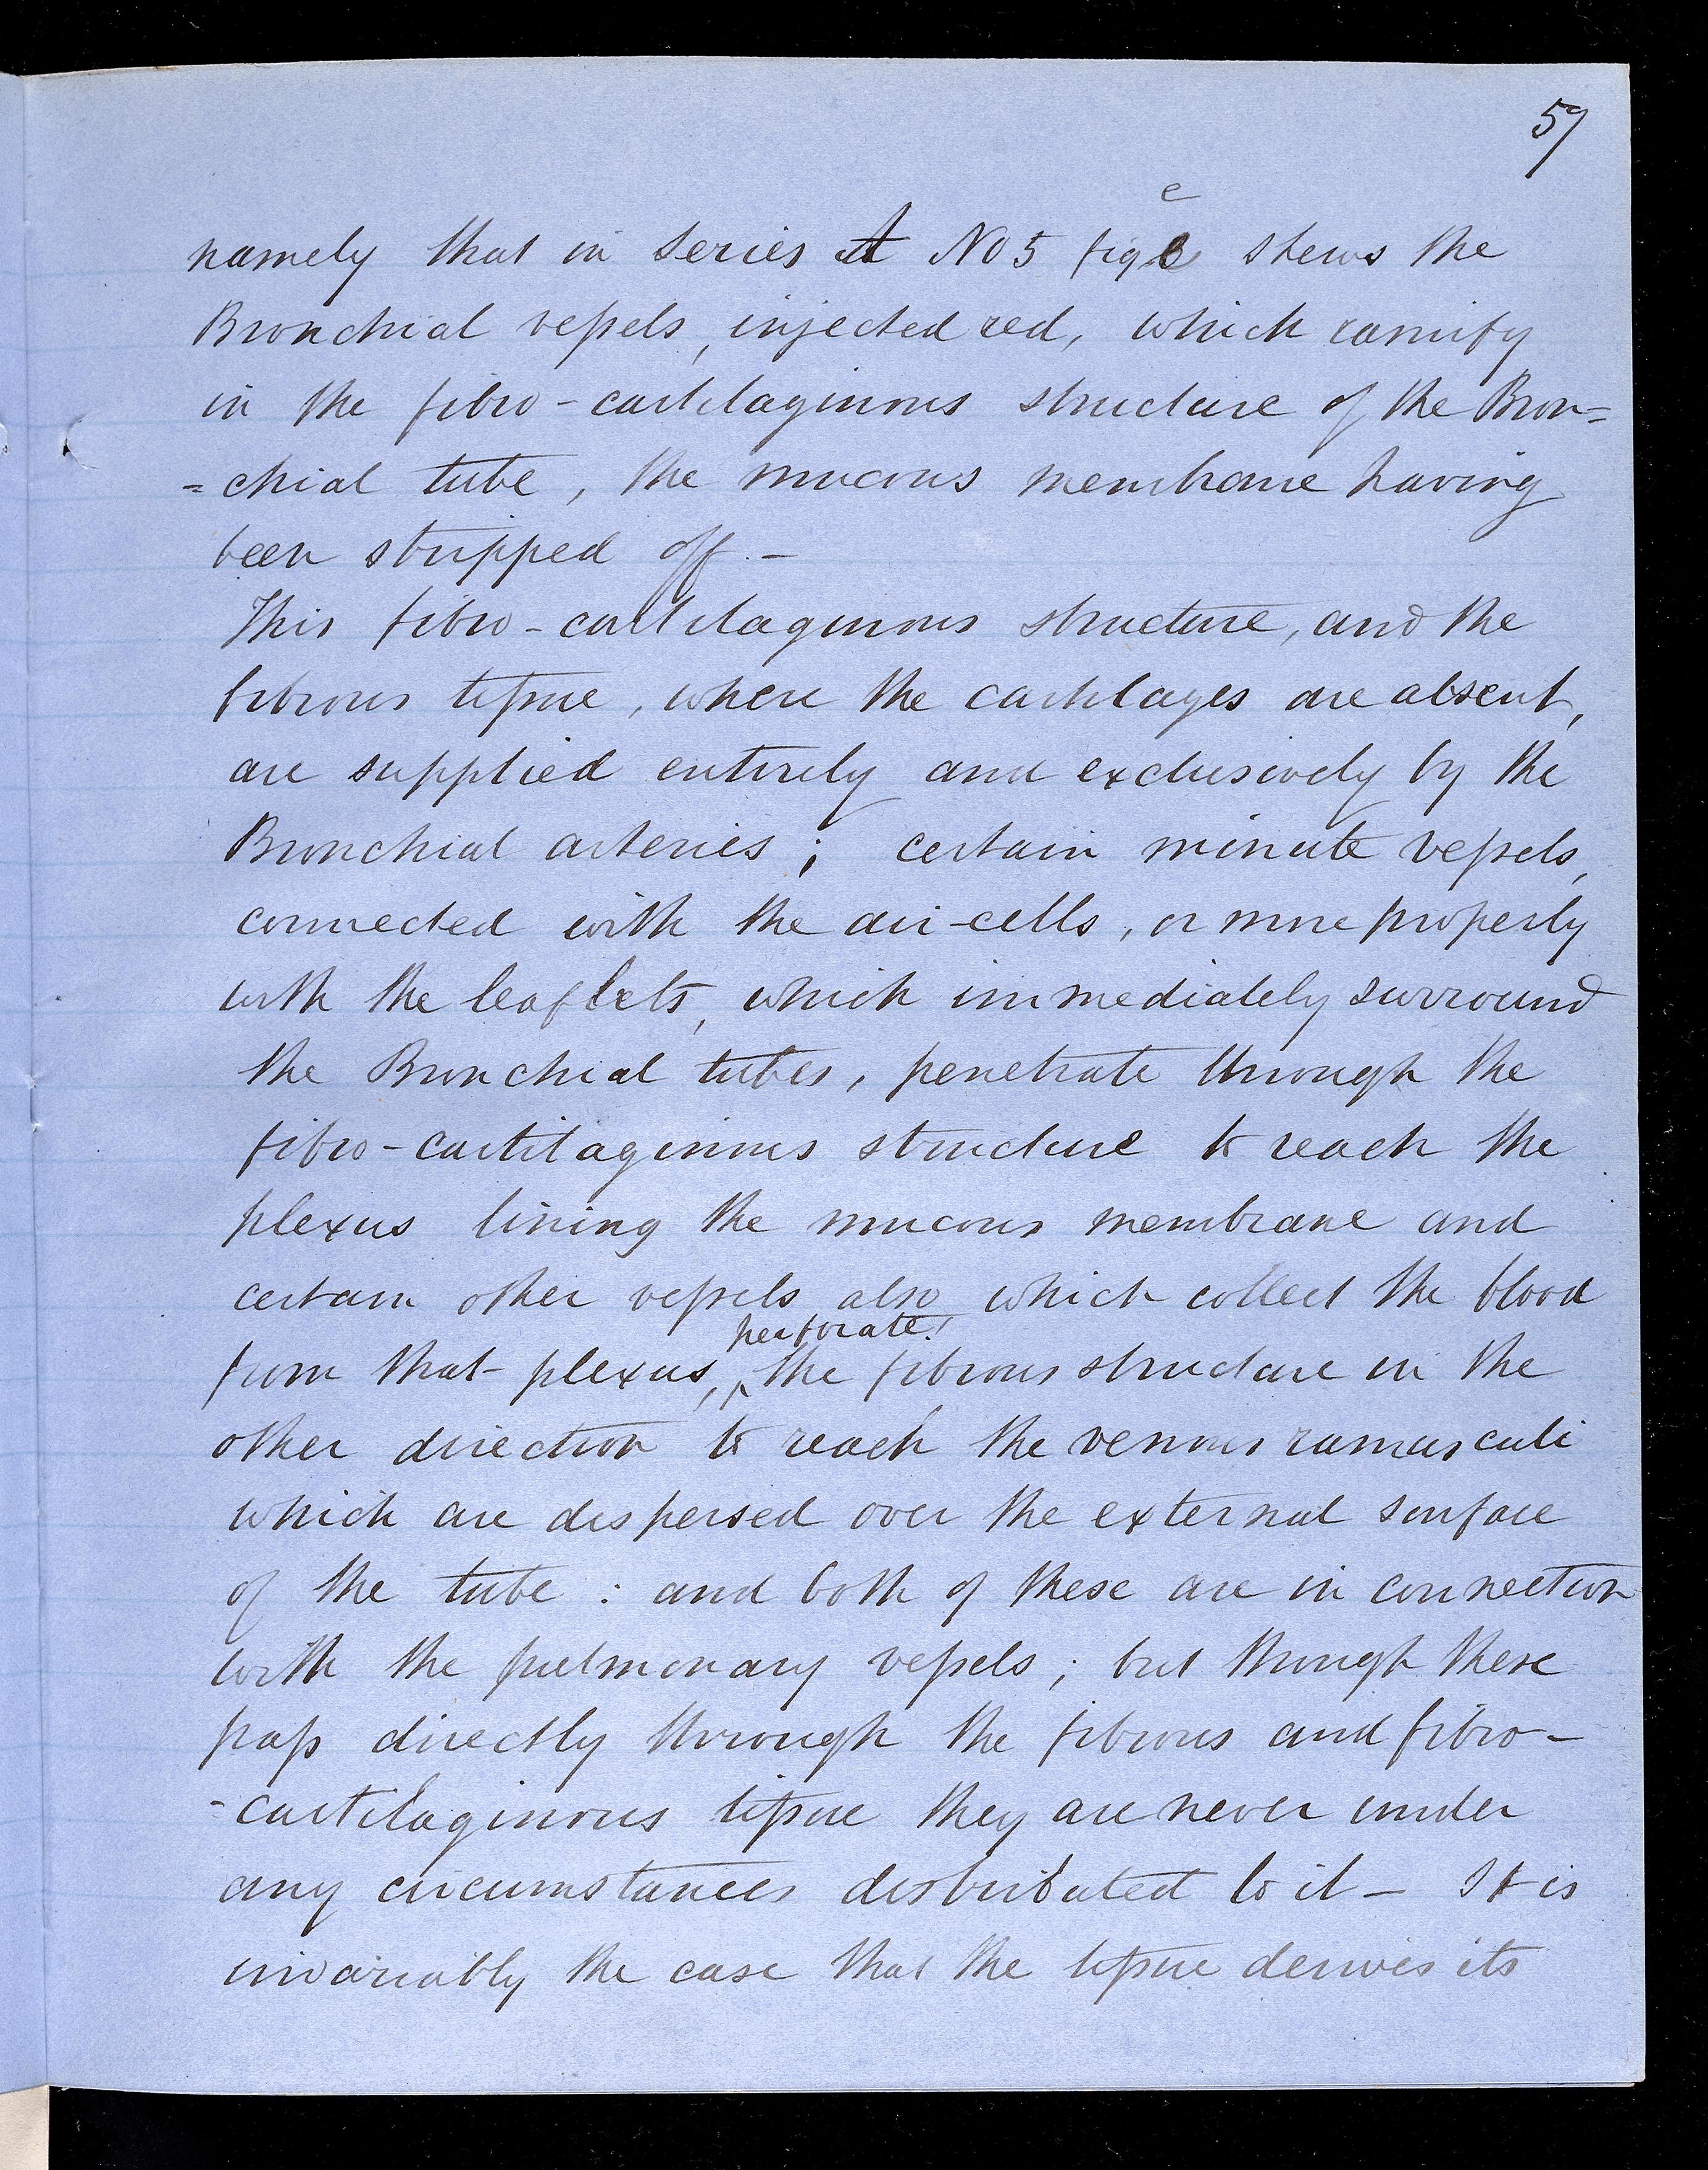 57
namely that in Series A No 5 fig c shews the
Bronchial vessels, injected red, which ramify
in the fibro-cartilaginous structure of the Bron=
=chial tube, the mucous membrane having
been stripped off. -
This fibro-cartilaginous structure, and the
fibrous tissue, where the cartilages are absent,
are supplied entirely and exclusively by the
Bronchial arteries; certain minute vessels,
connected with the air-cells, or more properly
with the leaflets, which immediately surround
the Bronchial tubes, penetrate through the
fibro-cartilaginous structure to reach the
plexus lining the mucous membrane and
certain other vessels also which collect the blood
perforate
from that plexus, the fibrous structure in the
other direction to reach the venous ramusculi
which are dispersed over the external surface
of the tube: and both of these are in connection
with the pulmonary vessels; but though these
pass directly through the fibrous and fibro-
-cartilaginous tissue they are never under
any circumstances distributed to it - It is
invariably the case that the tissue derives its